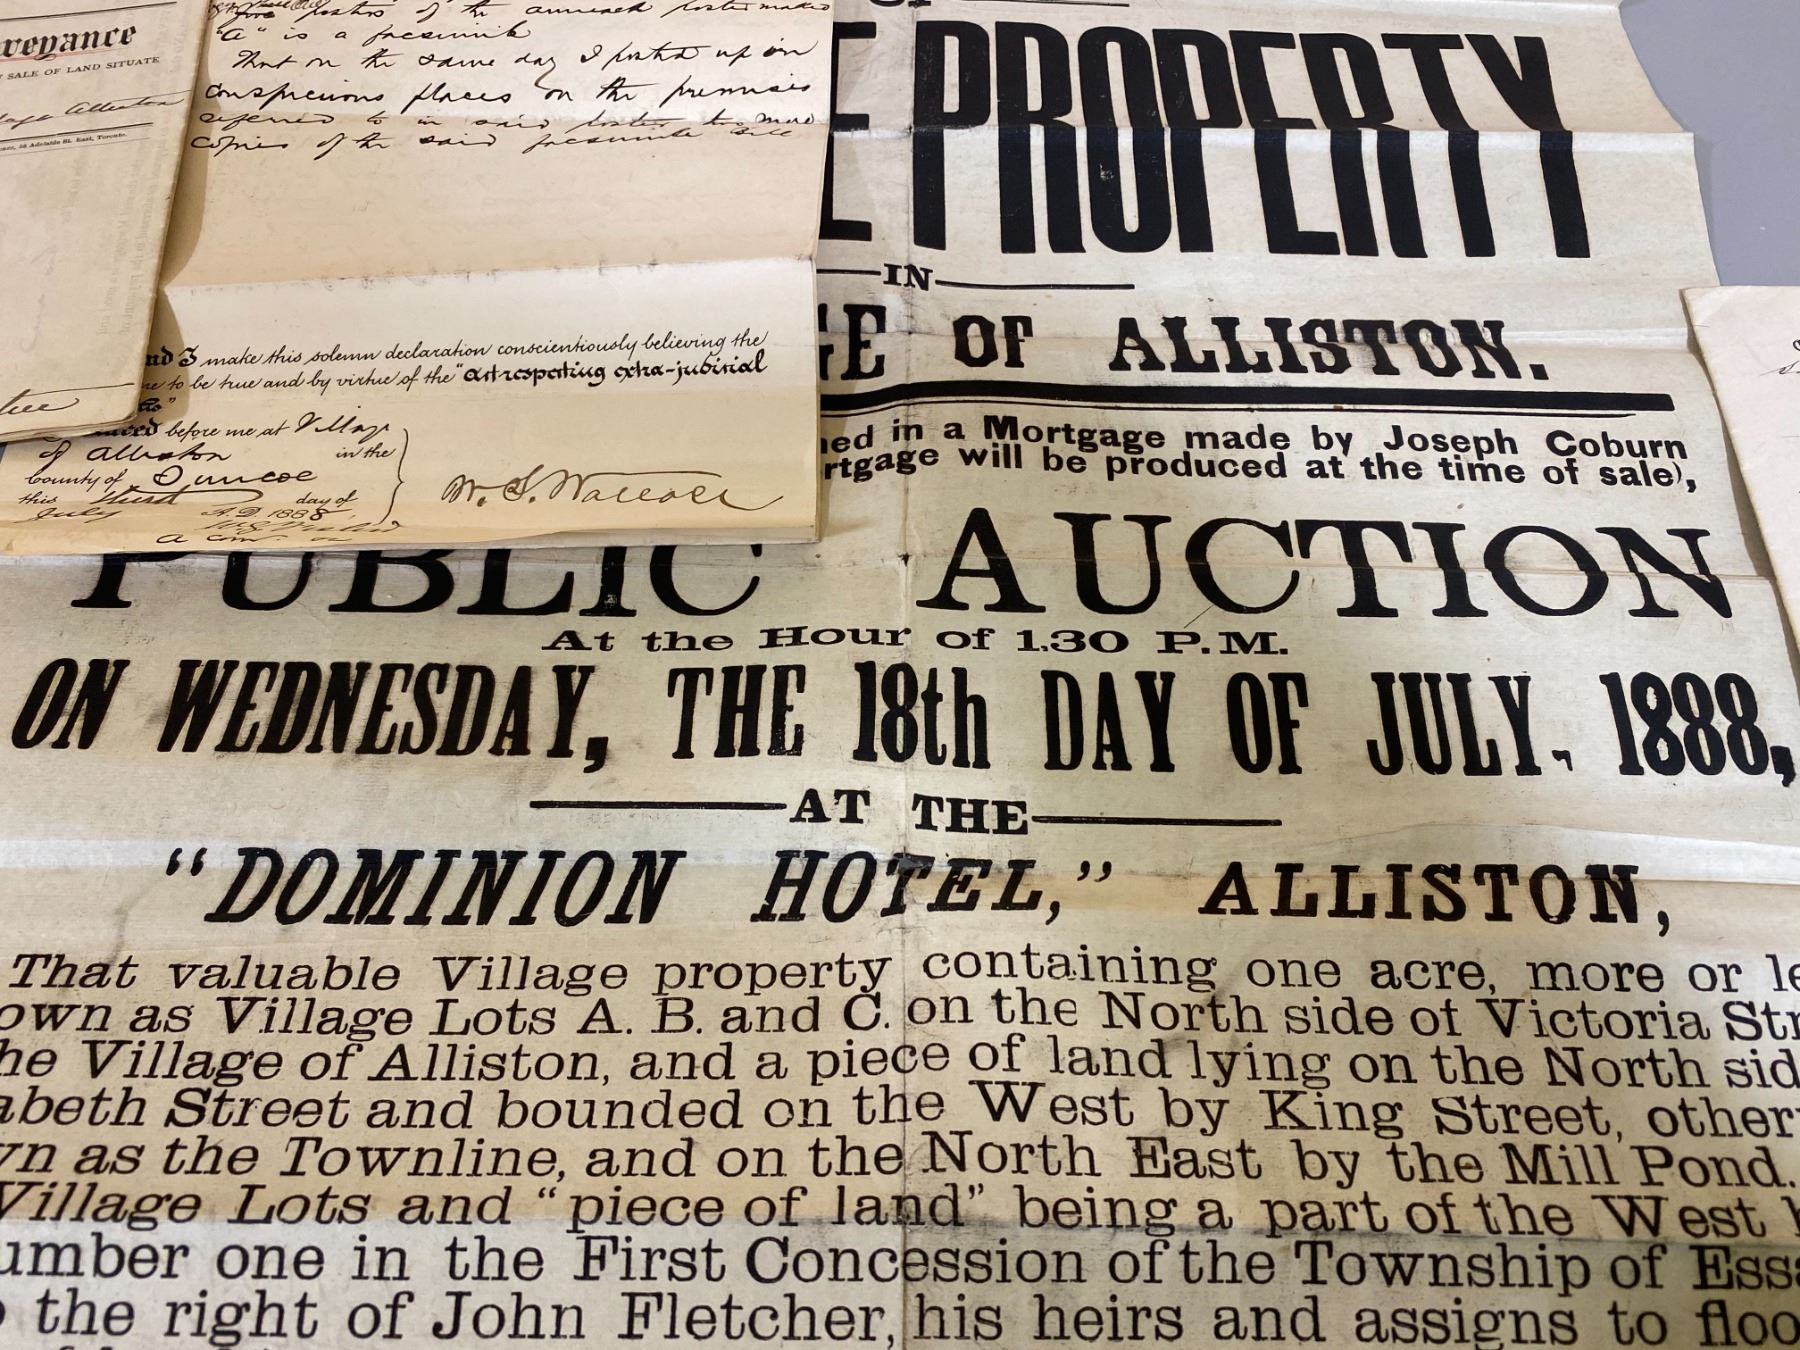 veyance
SALE OF LAND SITUATE
Alliston
Adelaide St. East, Toronto.
posters of the annexed poster marked
"A" is a facsimile
That on the same day I posted up in
conspicuous places on the premises
referred to in said poster two more
copies of the said facsimile
nd I make this solemn declaration conscientiously believing the
me to be true and by virtue of the "Act respecting extra-judicial
before me at Village
of Alliston in the
County of Simcoe
this day of
July A.D. 1888
a com.
W. S. Wallace
E PROPERTY
IN
GE OF ALLISTON.
ned in a Mortgage made by Joseph Coburn
rtgage will be produced at the time of sale),
PUBLIC AUCTION
At the Hour of 1.30 P.M.
ON WEDNESDAY, THE 18th DAY OF JULY, 1888,
AT THE
"DOMINION HOTEL," ALLISTON,
That valuable Village property containing one acre, more or le
own as Village Lots A. B. and C. on the North side of Victoria Str
he Village of Alliston, and a piece of land lying on the North sid
abeth Street and bounded on the West by King Street, other
wn as the Townline, and on the North East by the Mill Pond.
Village Lots and "piece of land" being a part of the West h
umber one in the First Concession of the Township of Essa
o the right of John Fletcher, his heirs and assigns to floo